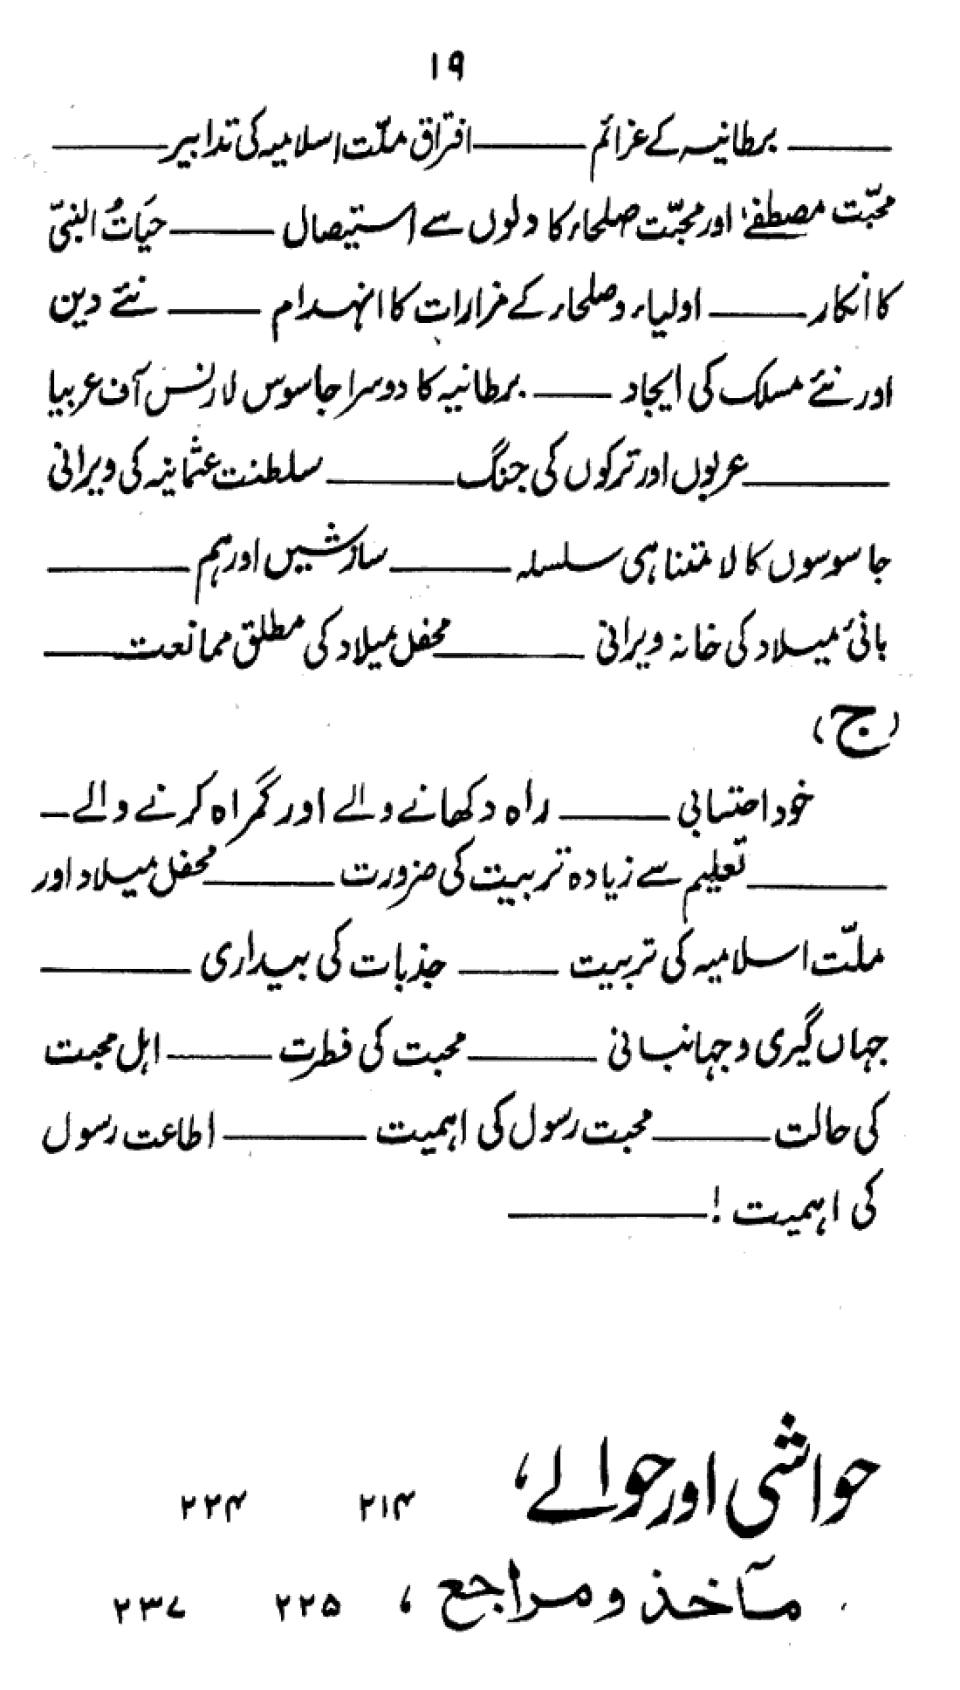 ۱۹
——— برطانیہ کے عزائم ——— افتراق ملّت اسلامیہ کی تدابیر ———
محبّت مصطفےٰ اور محبّت صلحاء کا دلوں سے استیصال ——— حیَاتُ النبیّ
کا انکار ——— اولیاء وصلحاء کے مزارات کا انہدام ——— نئے دین
اور نئے مسلک کی ایجاد ——— برطانیہ کا دوسرا جاسوس لارنس آف عربیا
——— عربوں اور ترکوں کی جنگ ——— سلطنت عثمانیہ کی ویرانی
جاسوسوں کا لا متناہی سلسلہ ——— سازشیں اور ہم ———
بانیٔ میلاد کی خانہ ویرانی ——— محفل میلاد کی مطلق ممانعت ———
(ج)
خود احتسابی ——— راہ دکھانے والے اور گمراہ کرنے والے —
——— تعلیم سے زیادہ تربیت کی ضرورت ——— محفل میلاد اور
ملّت اسلامیہ کی تربیت ——— جذبات کی بیداری ———
جہاں گیری وجہانبانی ——— محبت کی فطرت ——— اہل محبت
کی حالت ——— محبت رسول کی اہمیت ——— اطاعت رسول
کی اہمیت ! ———
حواشی اور حوالے، ۲۱۴ ۲۲۴
مآخذ و مراجع ، ۲۲۵ ۲۳۷